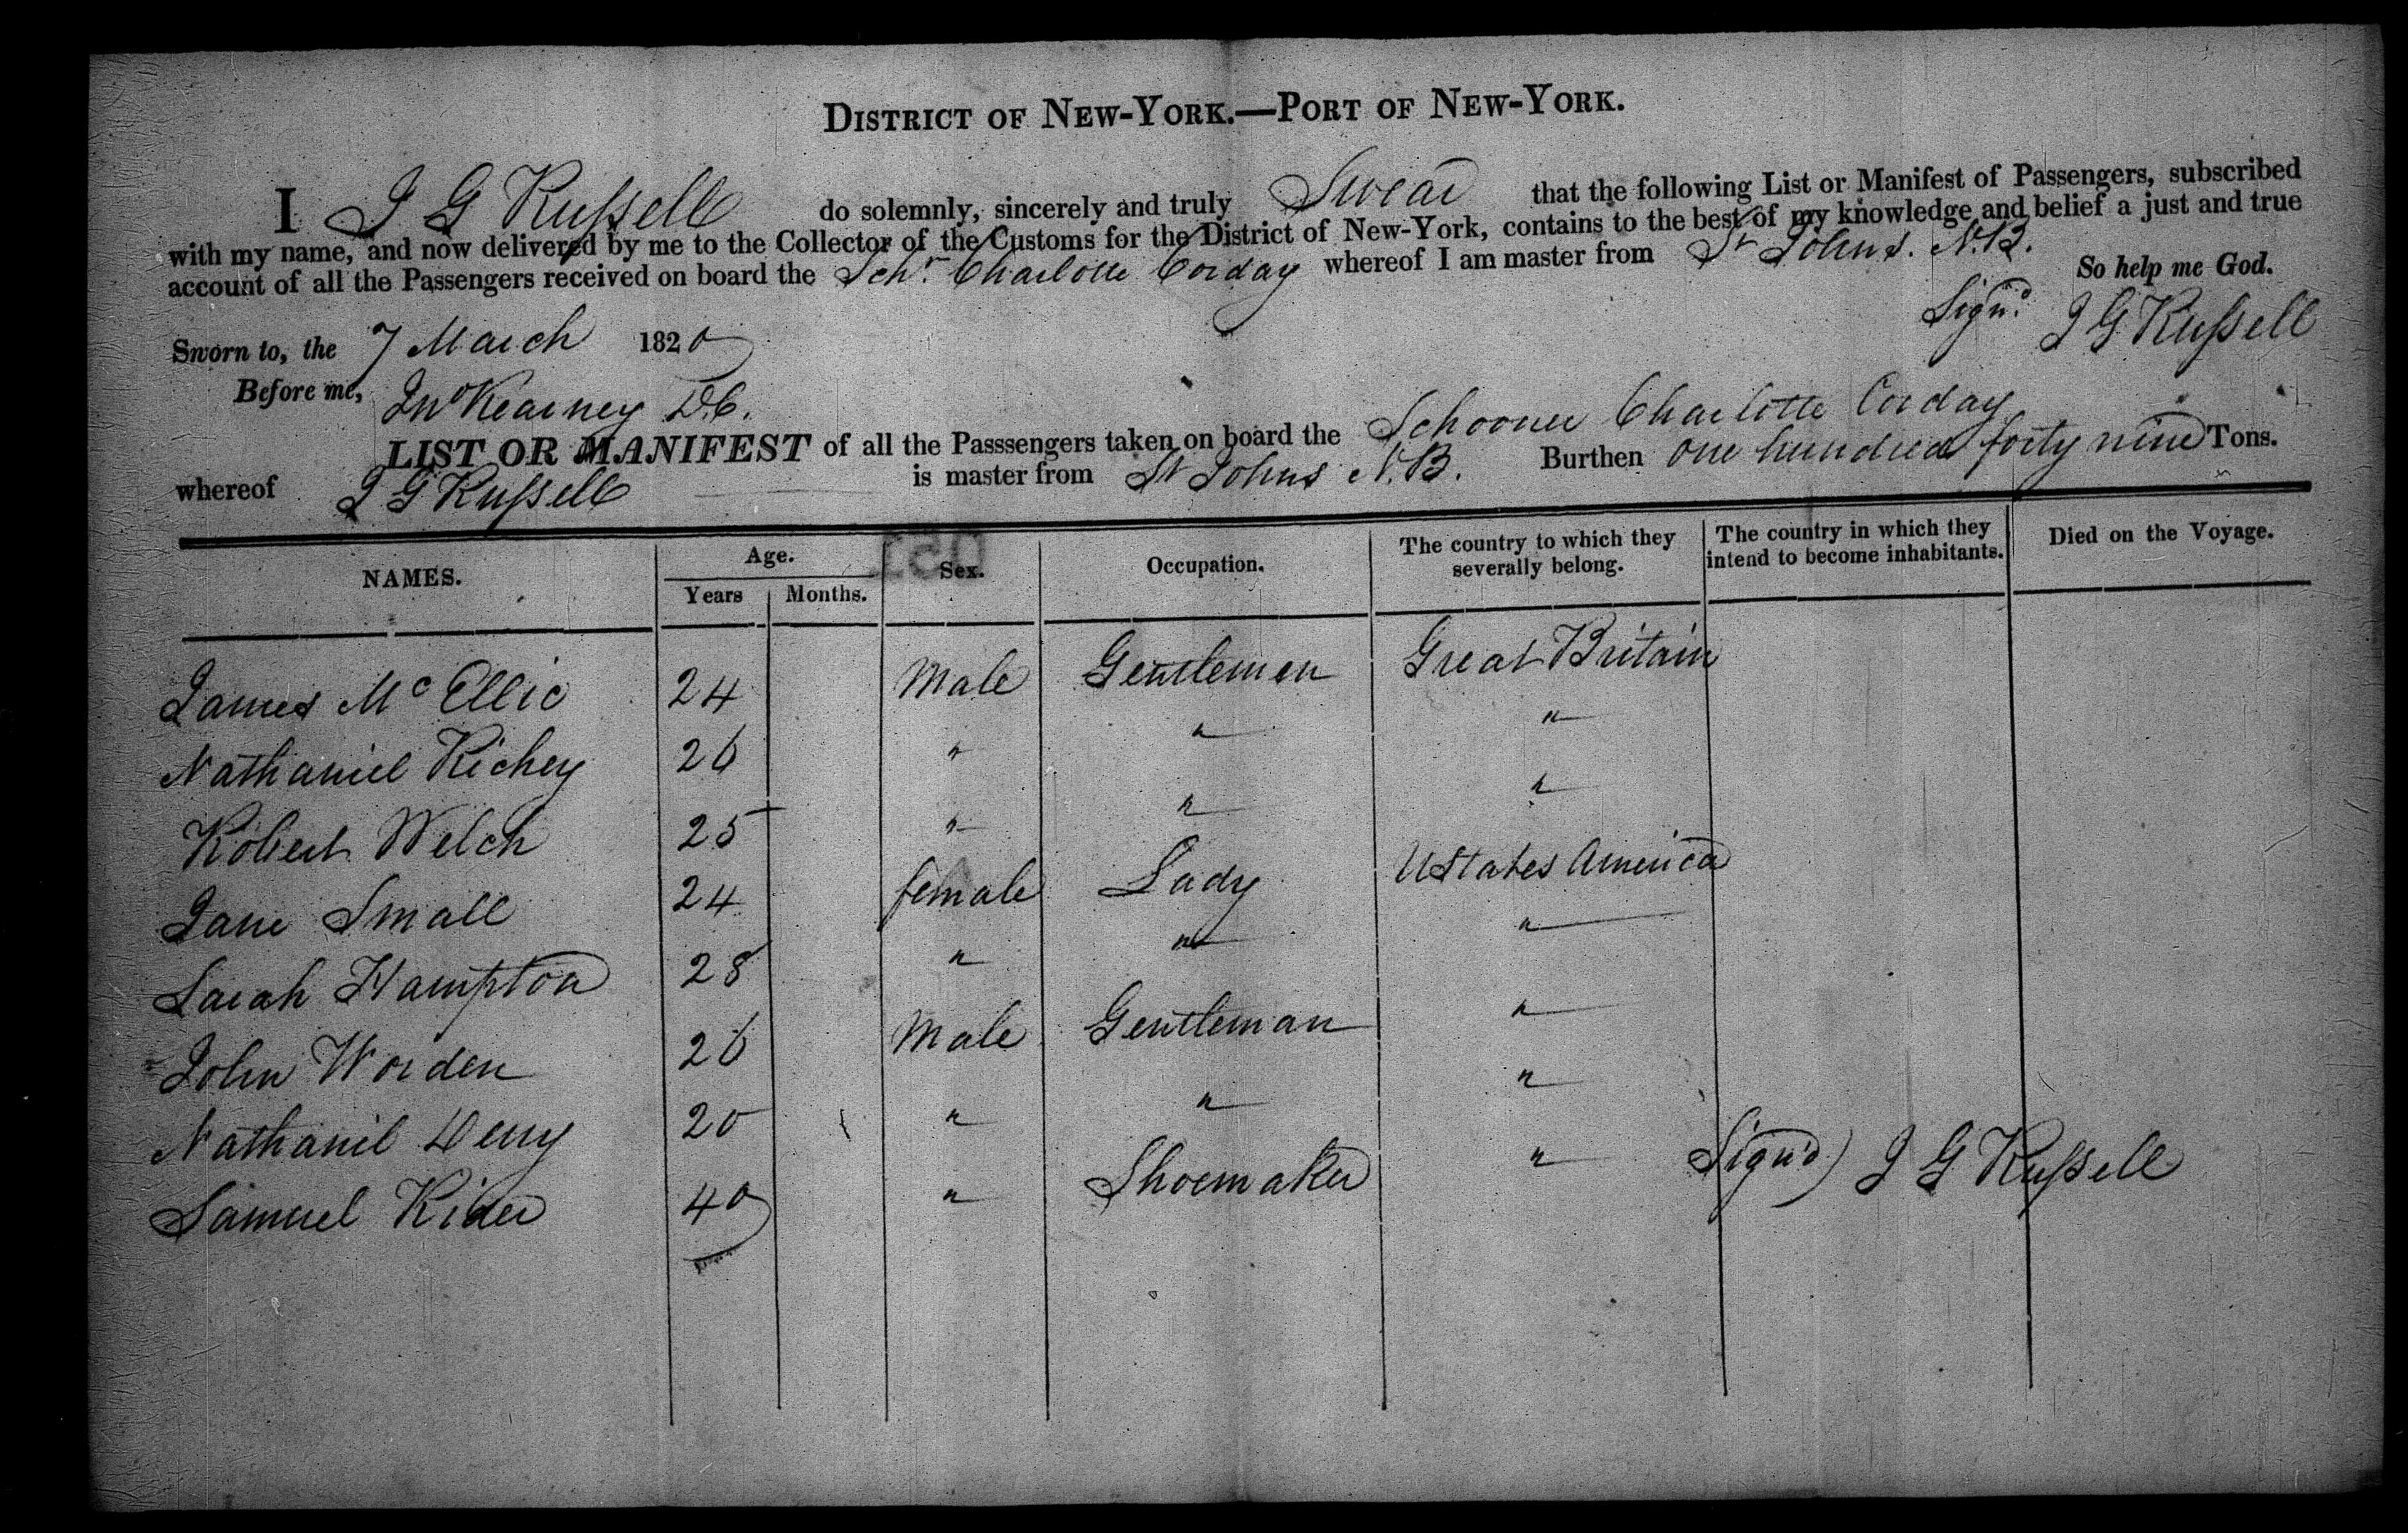 DISTRICT OF NEW-YORK.—PORT OF NEW-YORK.
I J G Russell do solemnly, sincerely and truly Swear that the following List or Manifest of Passengers, subscribed
with my name, and now delivered by me to the Collector of the Customs for the District of New-York, contains to the best of my knowledge and belief a just and true
account of all the Passengers received on board the Schr. Charlotte Corday whereof I am master from St Johns. N.B.
So help me God.
Sworn to, the 7 March 1820
Signd. J G Russell
Before me, Jno Kearney D.C.
LIST OR MANIFEST of all the Passsengers taken on board the Schooner Charlotte Corday
whereof J G Russell is master from St Johns N.B. Burthen one hundred forty nine Tons.
NAMES. Age. Years Months. Sex. Occupation. The country to which they severally belong. The country in which they intend to become inhabitants. Died on the Voyage.
James Mc Ellic 24 Male Gentlemen Great Britain
Nathaniel Richey 26 " " "
Robert Welch 25 " " "
Jane Small 24 female Lady UStates America
Sarah Hampton 28 " " "
John Worden 26 Male Gentleman "
Nathanil 20 " " "
Samuel Rider 40 " Shoemaker "
Signd) J G Russell